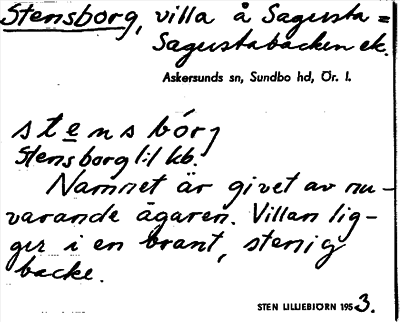 Stensborg, villa å Sagusta=
Sagustabacken ek.
Askersunds sn, Sundbo hd, Ör. l.
stensbórj
Stensborg l:l kb.
Namnet är givet av nu-
varande ägaren. Villan lig-
ger i en brant, stenig
backe.
STEN LILLIEBJÖRN 1953.